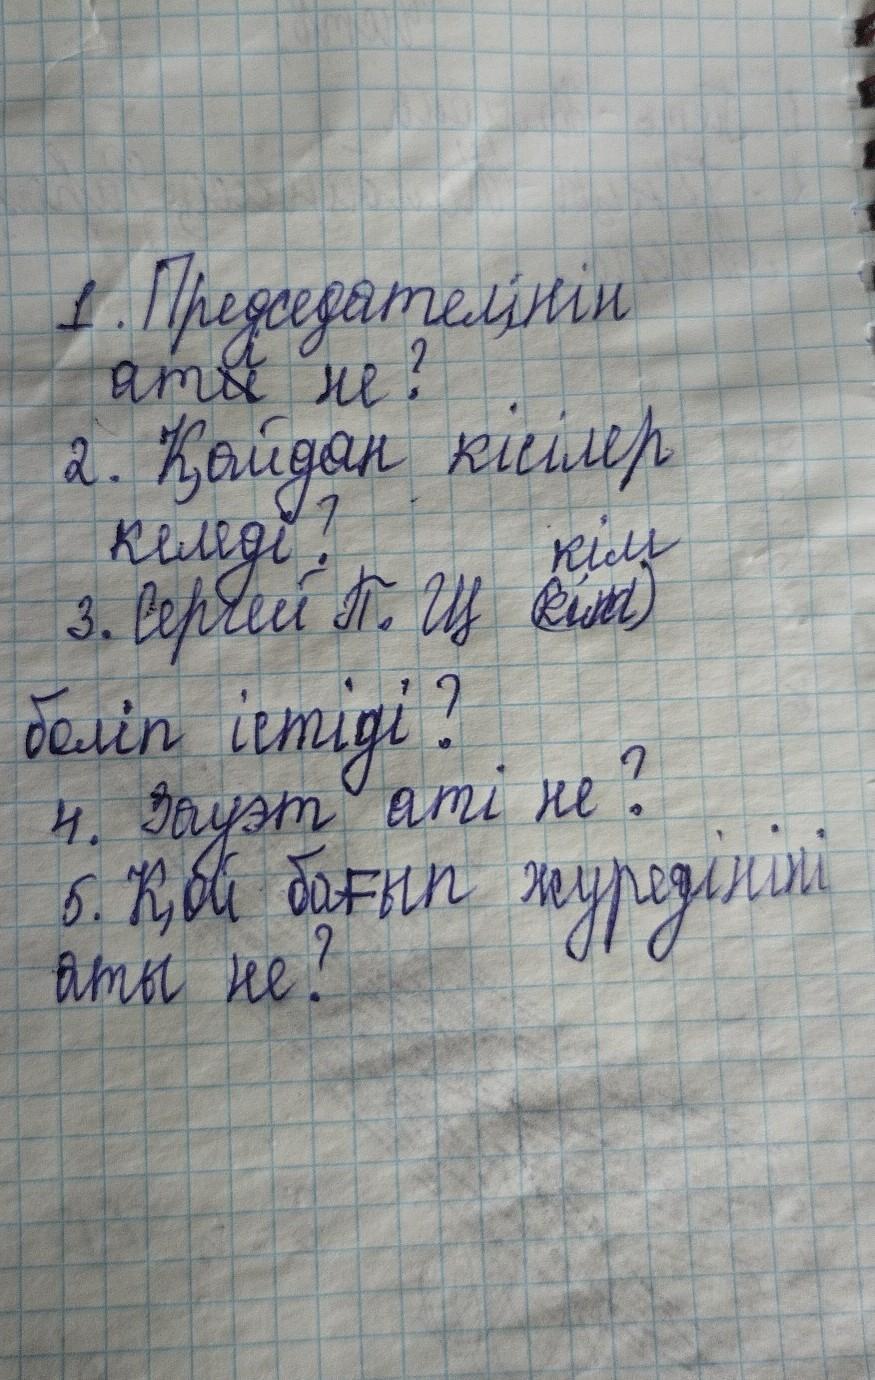 1. Председателінін
аты не?
2. Қайдан кісілер
келеді?
кім
3. Сергей П. Щ (кім)
болып істіді?
4. Зауэт аті не?
5. Қой бағып журедініні
аты не?